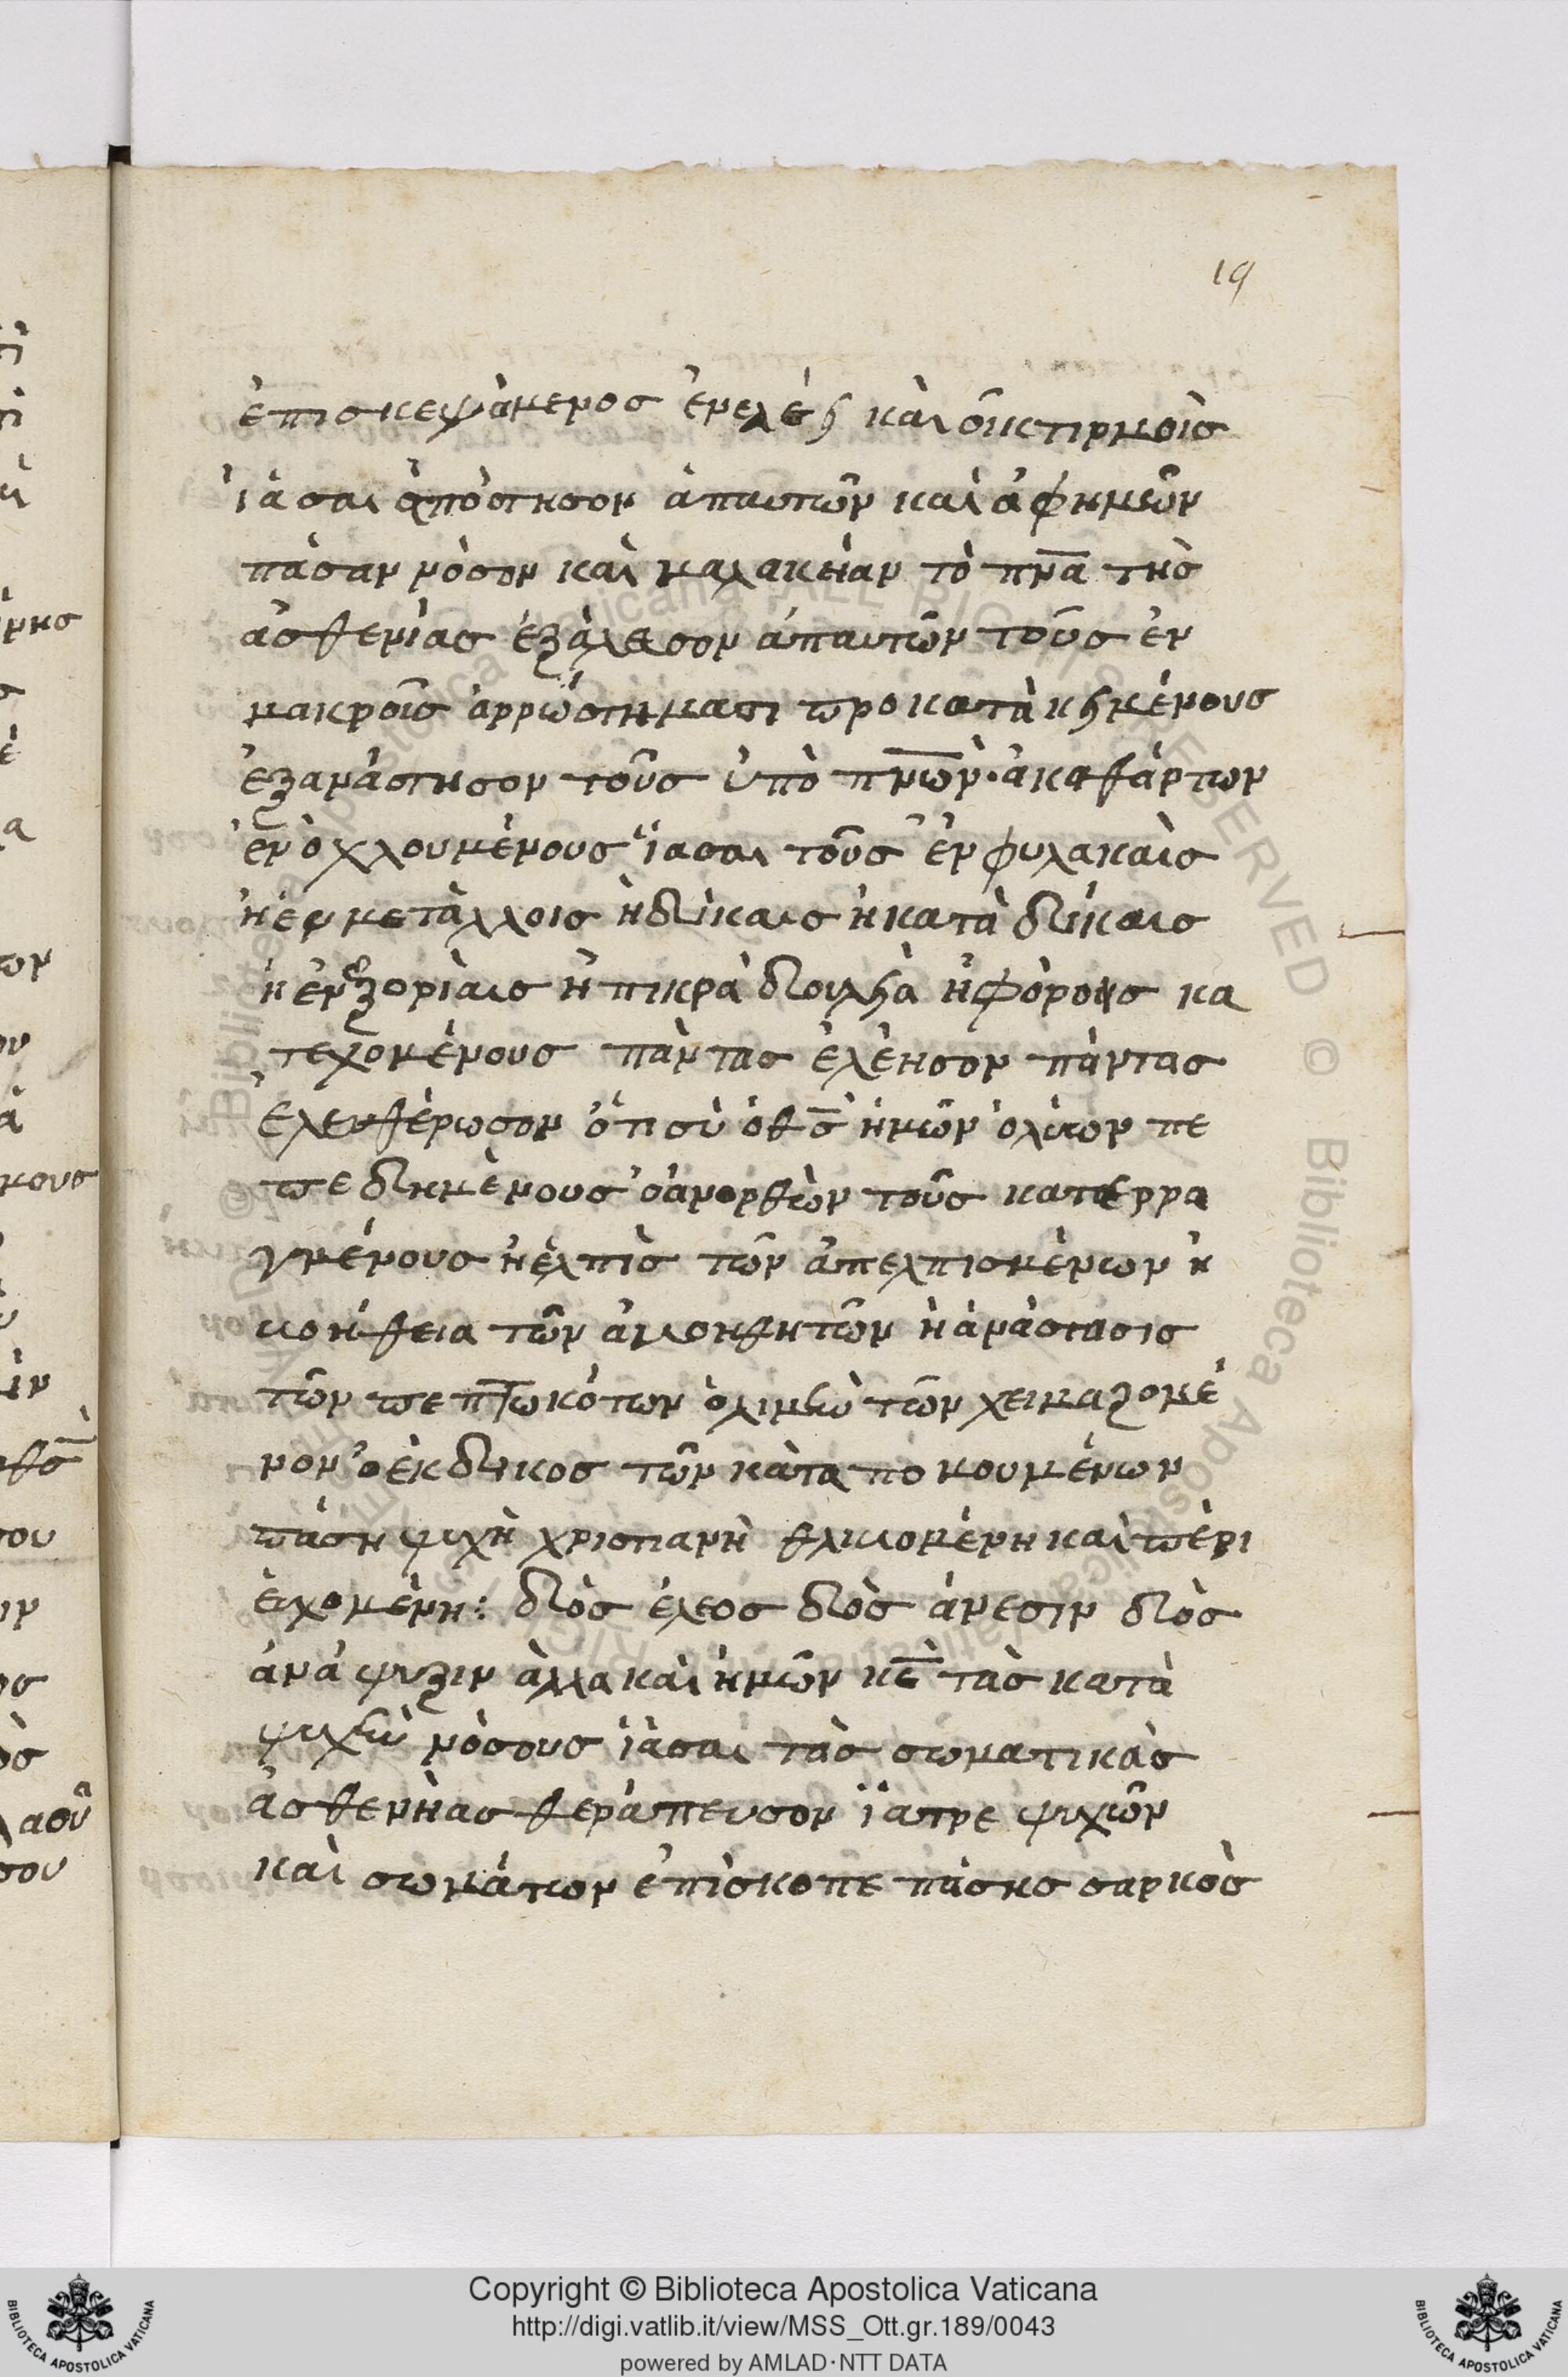 19
ἐπισκεψάμενος ἐνελέει καὶ οἰκτιρμοῖς
ἰάσαι ἀπόστησον ἀπαυτῶν καὶ ἀφημῶν
πάσαν νόσον καὶ μαλακήαν τὸ πνα τῆς
ἀσθενίας ἐξάλεασον ἀπαυτῶν τοῦς ἐν
μακροῖς ἀρρώστημασι προκατὰκειμένους
ἐξανάστησον τοῦς ὑπὸ πνων · ἀκαθάρτων
ἐνὸχλουμένους ἴασαι τοῦς ἐν φυλακαὶς
ἠ ἐν μετάλλοις ἠδίκαις ἠκατὰδίκαις
ἠ ἐνξορίαις ἠ πικρὰ δουλεία ἠφόροις κα
τεχομένους πάντας ἐλέησον πάντας
ἐλευθέρωσον ὅτι σὺ ὁθς ἡμῶν ὁλύων πε
πεδημένους ὁἀνορθῶν τοῦς κατερρα
γμένους ἠἐλπὶς τῶν ἀπελπισμένων ἡ
βοήθεια τῶν ἀβοηθητῶν ἡ ἀνάστασις
τῶν πεπτωκότων ὁλιμὴν τῶν χειμαζομέ
νον ὁἔκδικος τῶν κὰταπονουμένων
πάση ψυχὴ χριστιανὴ θλιβομένη καὶ πέρι
ἐχομένη: δὸς ἔλεος δὸς ἄνεσιν δὸς
ἀνάψυξιν ἀλλα καὶ ἡμῶν κε τὰς κατὰ
ψυχὴν νόσους ἰάσαι τὰς σωματικὰς
ἀσθενήας θεράπευσον ἰατρε ψυχῶν
καὶ σωμάτων ἐπίσκοπε πάσης σαρκὸς
Copyright © Biblioteca Apostolica Vaticana
http://digi.vatlib.it/view/MSS_Ott.gr.189/0043
powered by AMLAD·NTT DATA
BIBLIOTECA APOSTOLICA VATICANA
BIBLIOTECA APOSTOLICA VATICANA